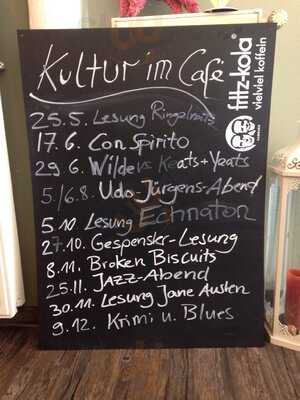 Kultur im Café
fritz-kola®
vielviel koffein
25.5. Lesung Ringelnatz
17.6. Con Spirito
29.6. Wilde vs Keats + Yeats
5./6.8. Udo-Jürgens-Abend
5.10 Lesung Echnaton
27.10. Gespenster-Lesung
8.11. Broken Biscuits
25.11. Jazz-Abend
30.11. Lesung Jane Austen
9.12. Krimi u. Blues